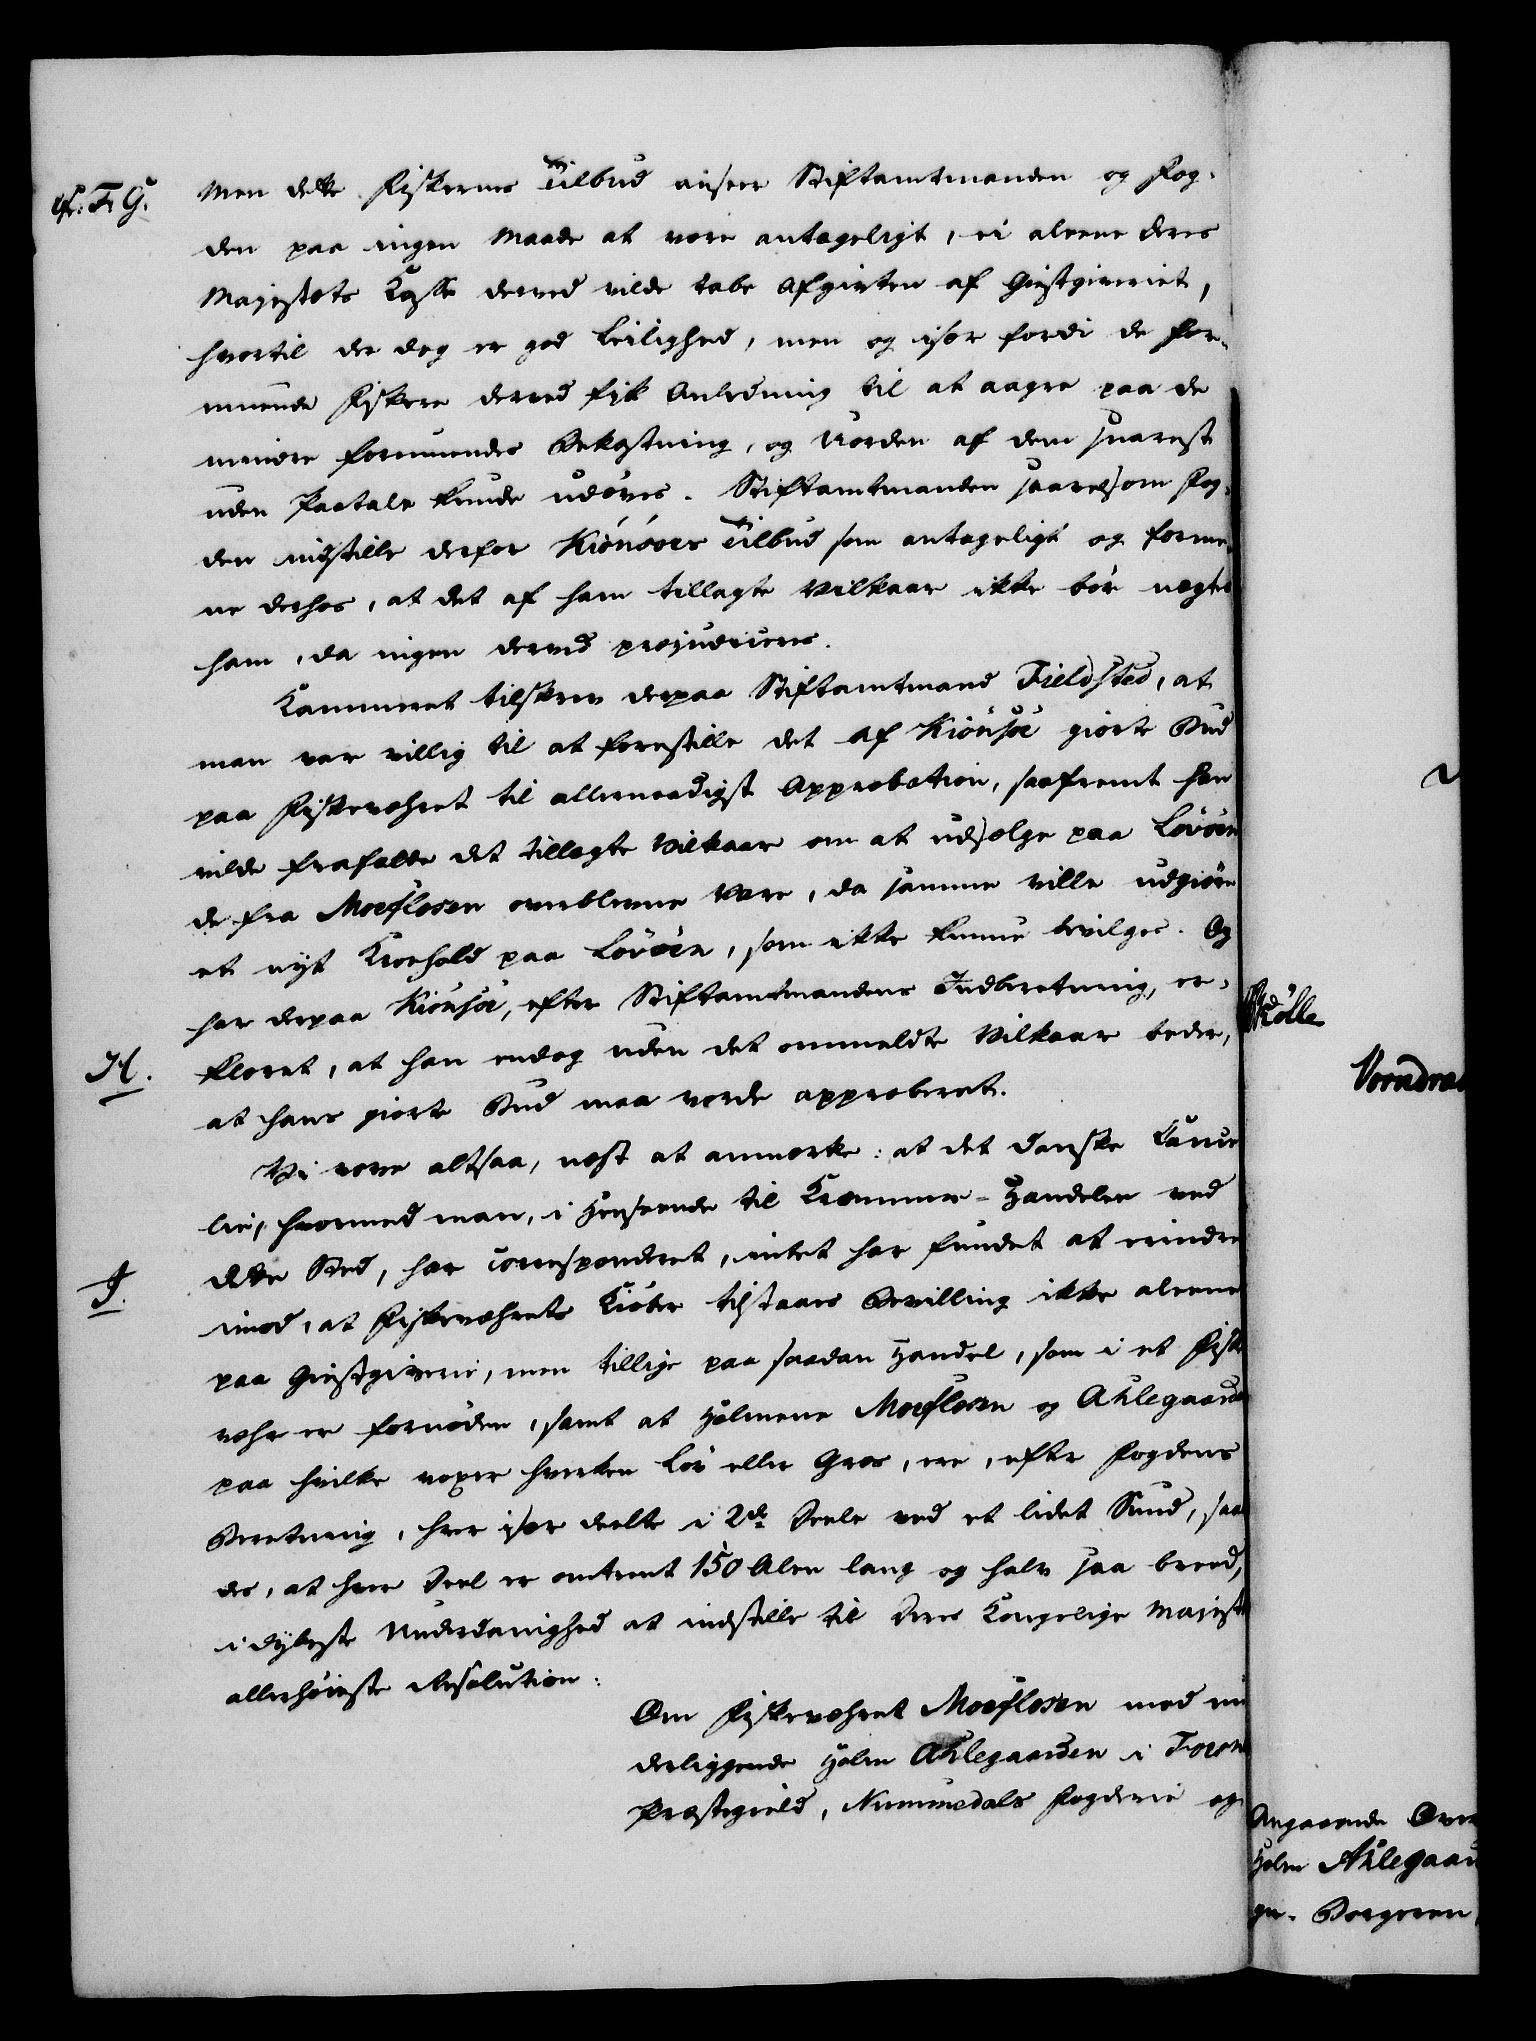 cfr: F. G.
Men dette Fiskernes Tilbud anseer Stiftamtmanden og Fog-
den paa ingen Maade at være antageligt, ei aleene Deres
Majestæts Casse derved vilde tabe Afgivten af Giestgiveriet,
hvortil der dog er god Leilighed, men og især fordi de for-
muende Fiskere derved fik Anledning til at aagre paa de
mindre formuendes Bekostning, og Uorden af dem snarest
uden Paatale kunde udøves. Stiftamtmanden saavelsom Fog-
den indstille derfor Kiönsöes Tilbud som antageligt og forme-
ne derhos, at det af ham tillagte Vilkaar ikke bör nægtes
ham, da ingen derved præjudiceres.
Kammeret tilskrev derpaa Stiftamtmand Fieldsted, at
man var villig til at forestille det af Kiönsöe giorte Bud
paa Fiskeværet til allernaadigst Approbation, saafremt han
vilde frafalde det tillagte Vilkaar om at udsælge paa Lövöen
de fra Moeflosen overblevne Vare, da samme ville udgiöre
et nyt Kroehold paa Lövöen, som ikke kunne bevilges. Og
har derpaa Kiönsöe, efter Stiftamtmandens Indberetning, er-
H.
klæret, at han endog uden det ommeldte Vilkaar beder,
at hans giorte Bud maa vorde approberet.
Vi vove altsaa, næst at anmærke: at det danske Cancel
lie, hvormed man, i Henseende til Kræmmer-Handelen ved
J.
dette Sted, har corresponderet, intet har fundet at erindre
imod, at Fiskeværets Kiöber tilstaaes Bevilling ikke aleene
paa Giestgiverie, men tillige paa saadan Handel, som i et Fiske
vær er fornöden, samt at Holmene Moeflosen og Ahlegaarden
paa hvilke voxer hverken Löv eller Græs, ere, efter Fogdens
Beretning, hver især deelte i 2de Deele ved et lidet Sund, saale
des, at hver Deel er omtrent 150 Alen lang og halv saa breed,
i dybeste Underdanighed at indstille til Deres Kongelige Majestæts
allerhöieste Resolution:
Om Fiskeværet Moeflosen med un
derliggende Holm Ahlegaarden i
Præstegield, Nummedals Fogderie og
Angaaende
Holm Ahlegaar